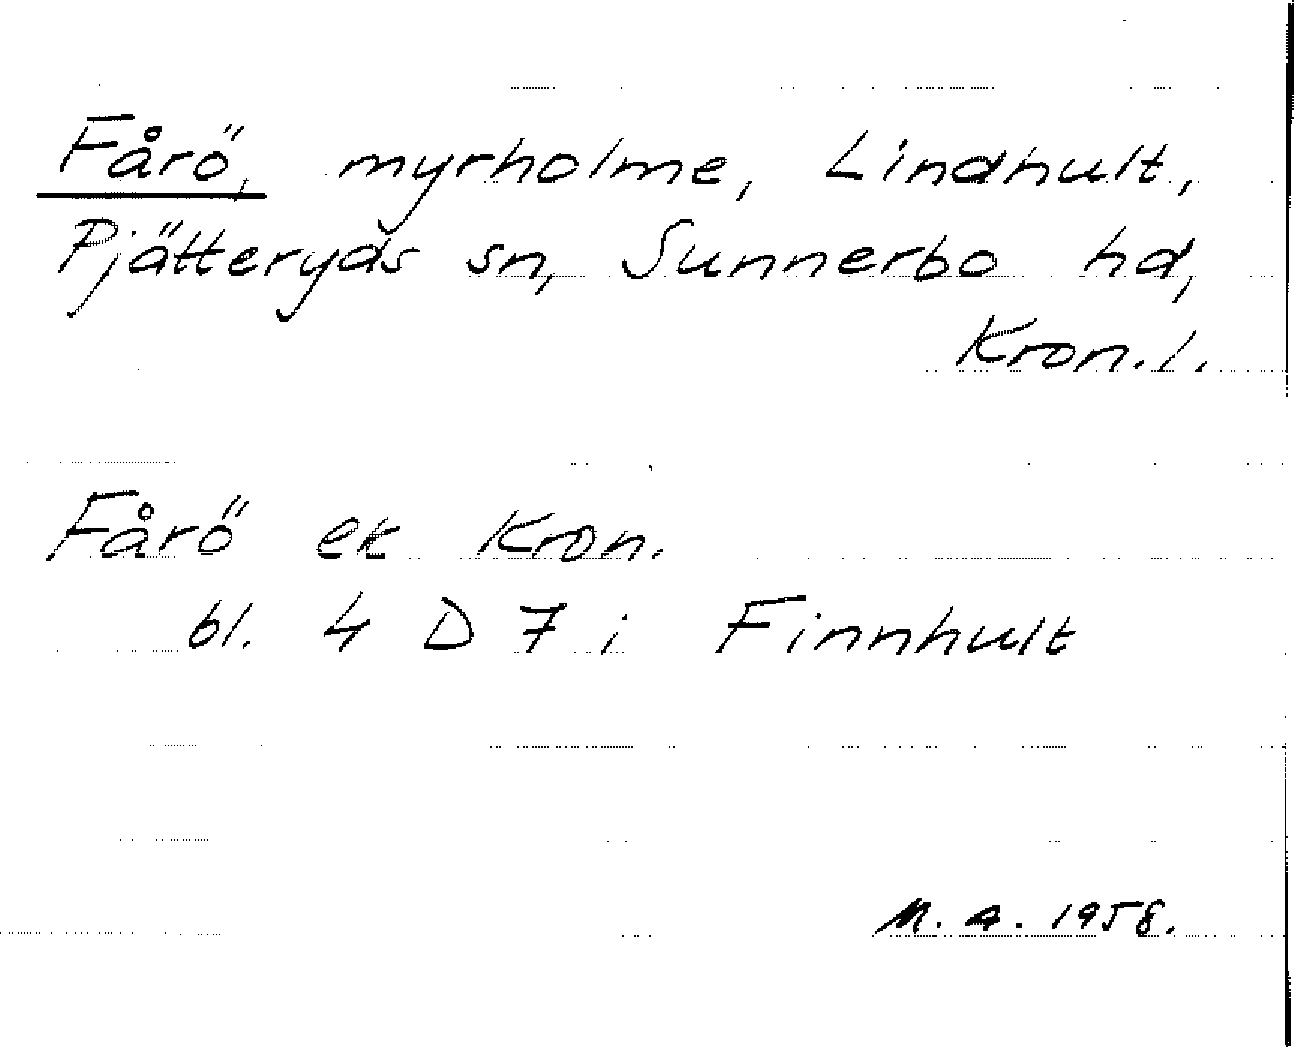 Fårö, myrholme, Lindhult,
Pjätteryds sn, Sunnerbo hd,
Kron. l.
Fårö ek Kron.
bl. 4 D 7 i Finnhult
M. A. 1958.